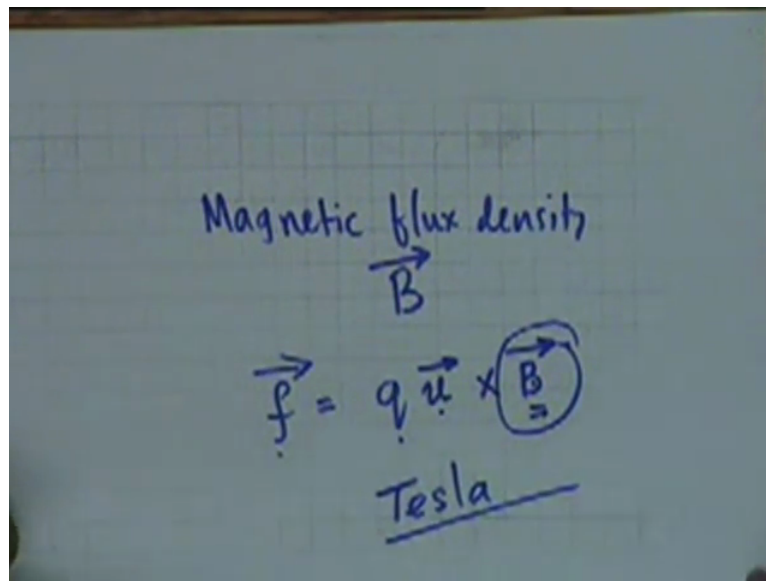 Magnetic flux density
B⃗
f⃗ = q u⃗ × B⃗
Tesla